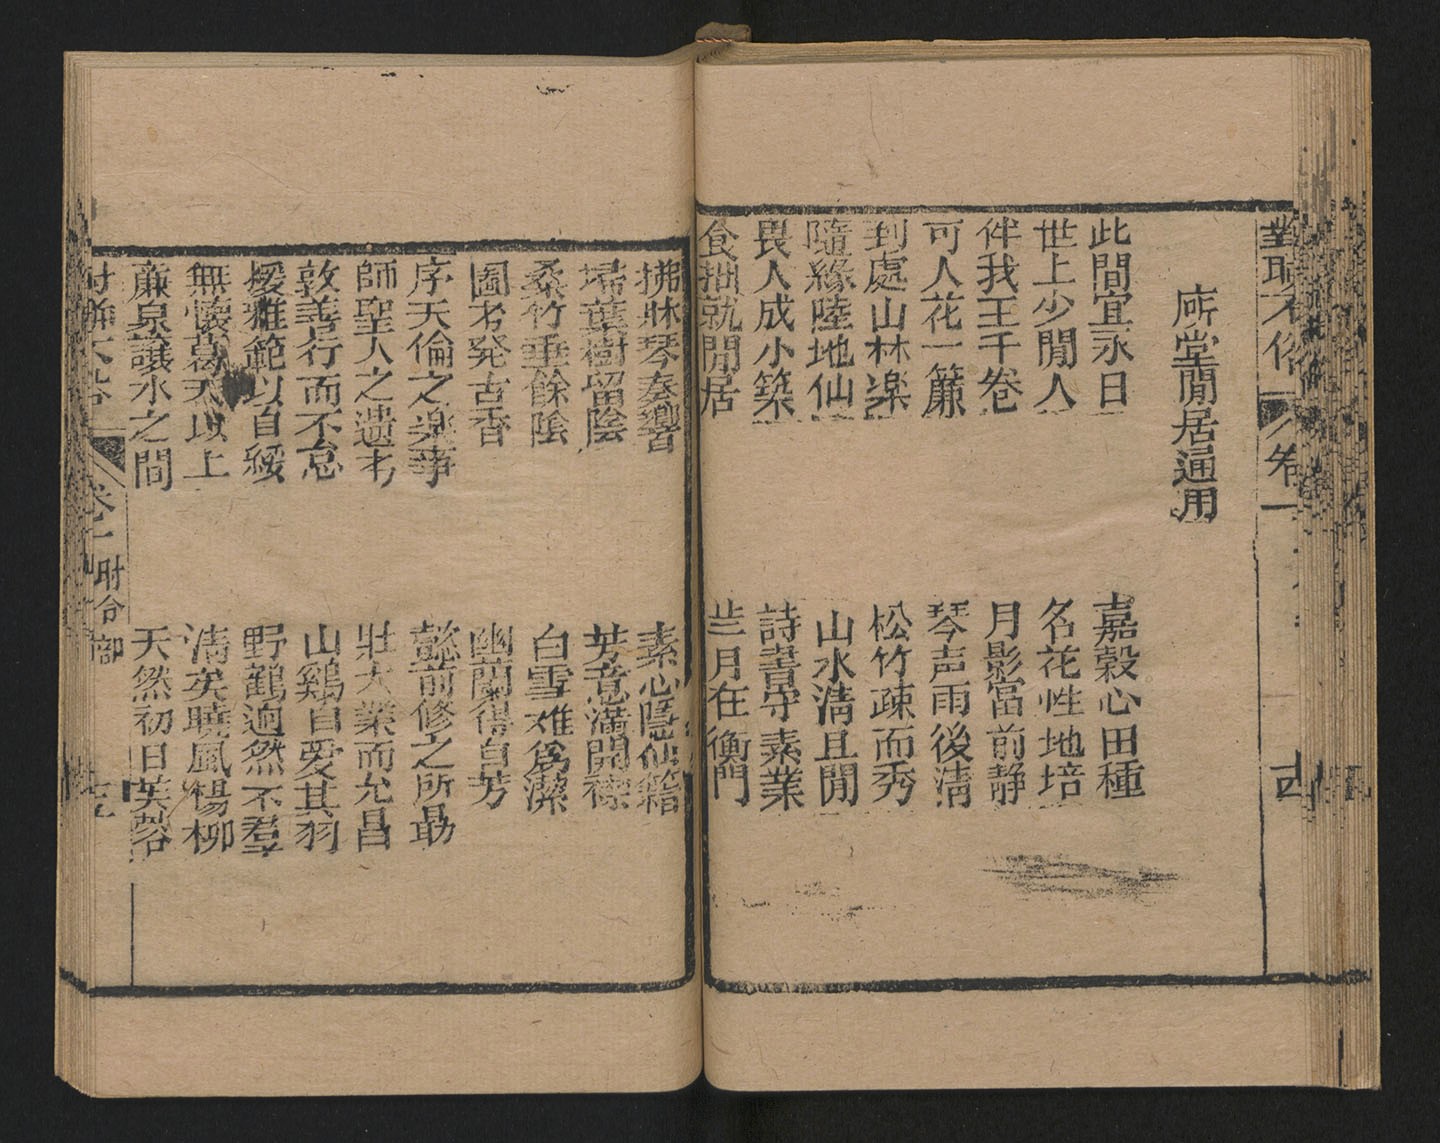 對聯不俗 卷一
厛堂閒居通用
此間宜永日 嘉穀心田種
世上少閒人 名花性地培
伴我王千卷 月影當前静
可人花一簾 琴声雨後清
到處山林楽 松竹疎而秀
隨緣陸地仙 山水清且閒
畏人成小築 詩書守素業
食拙就閒居 兰月在衡門
拂牀琴奏響 素心隱仙籍
埽葉樹留陰 芳意滿開襟
桑竹垂餘陰 白雪难為潔
圖书発古香 幽蘭得自芳
序天倫之楽事 懿前修之所勗
師聖人之遗书 壯大業而允昌
敦善行而不怠 山鷄自爱其羽
援雅範以自綏 野鶴迥然不羣
無懷葛天以上 清矣曉風楊柳
蔴泉讓水之間 天然初日芙蓉
對聯不俗 卷一 附合部 十五